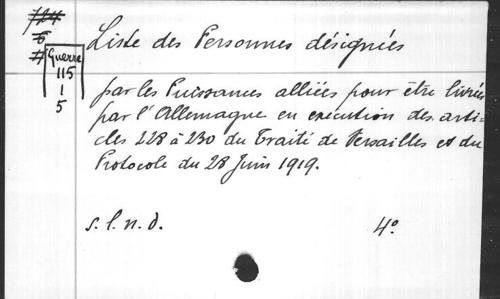 Liste des Personnes désignées
Guerre
115
1
5
par les Puissances alliées pour être livrées
par l'Allemagne en exécution des arti-
cles 228 à 230 du Traité de Versailles et du
Protocole du 28 Juin 1919.
s. l. n. d. 4º